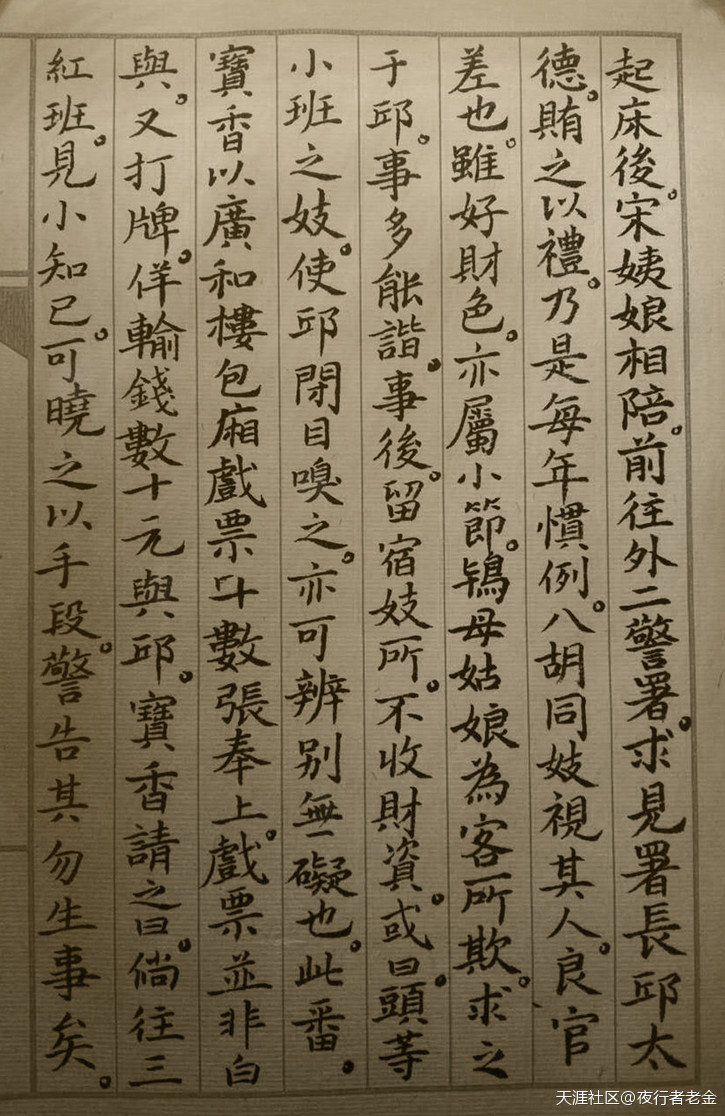 起床後。宋姨娘相陪。前往外二警署。求見署長邱太
德。賄之以禮。乃是每年慣例。八胡同妓視其人。良官
差也。雖好財色。亦屬小節。鴇母姑娘為客所欺。求之
于邱。事多能諧。事後。留宿妓所。不收財資。或曰。頭等
小班之妓。使邱閉目嗅之。亦可辨别無礙也。此番。
寶香以廣和樓包廂戲票數張奉上。戲票並非白
與。又打牌。佯輸錢數十元與邱。寶香請之曰。倘往三
紅班。見小知己。可曉之以手段。警告其勿生事矣。
天涯社区@夜行者老金